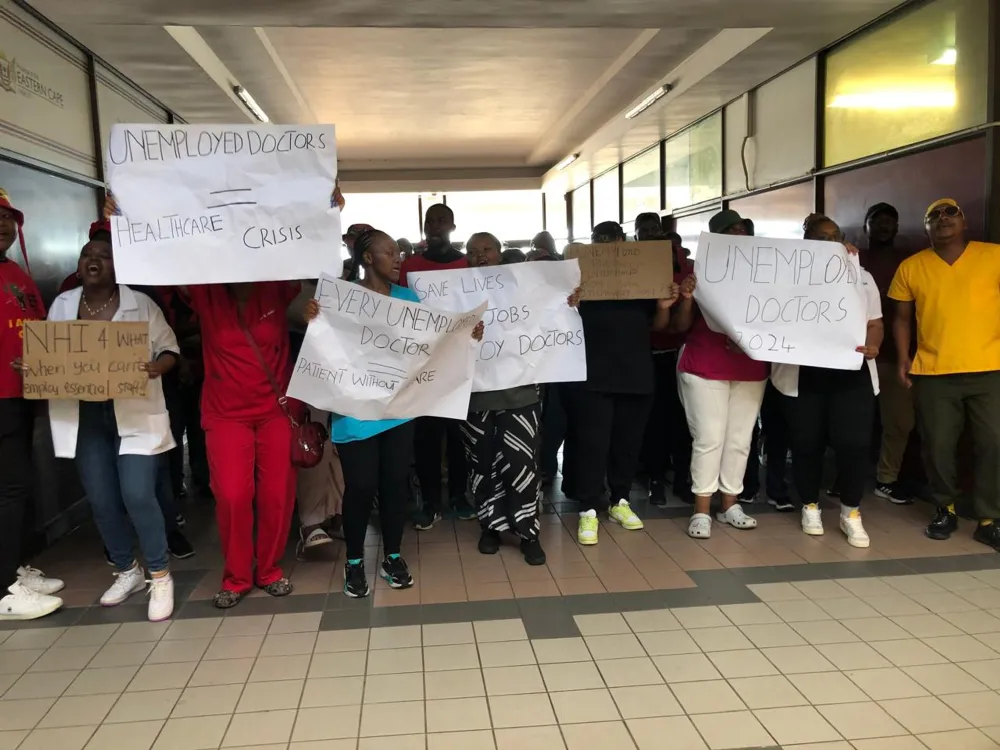 EASTERN CAPE
UNEMPLOYED DOCTORS
=
HEALTHCARE CRISIS
NHI 4 WHAT
When you can't
employ essential staff!!
EVERY UNEMPLOYED
DOCTOR
=
PATIENT WITHOUT CARE
SAVE LIVES
JOBS
DOCTORS
UNEMPLOYED
DOCTORS
2024